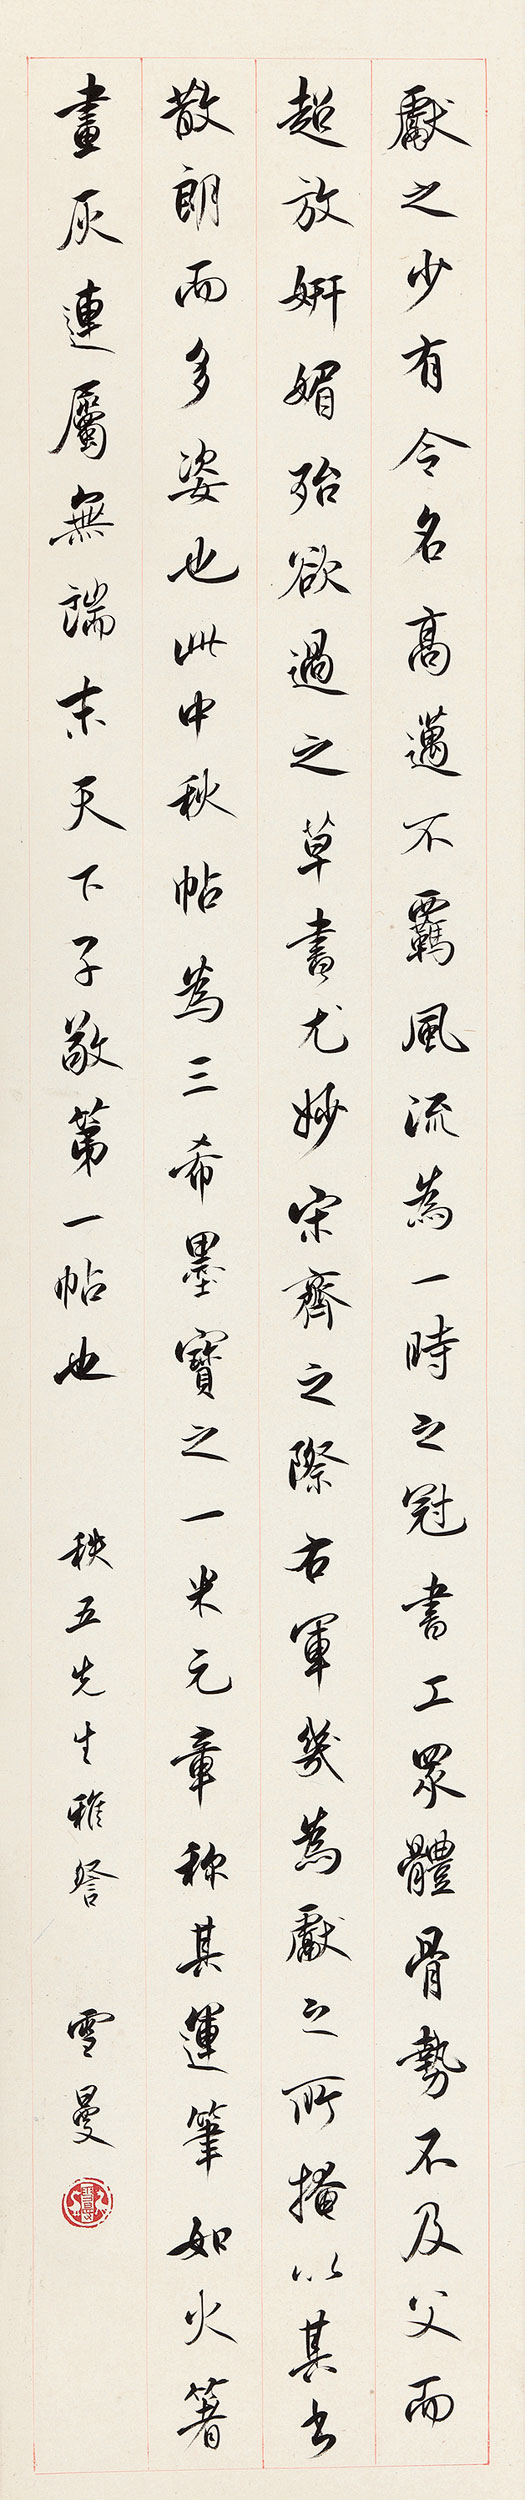 獻之少有令名高邁不羈風流為一時之冠書工眾體骨勢不及父而
超放妍媚殆欲過之草書尤妙宋齊之際右軍幾為獻之所掩以其書
散朗而多姿也此中秋帖為三希墨寶之一米元章稱其運筆如火箸
畫灰連屬無端末天下子敬第一帖也
秩五先生雅詧
雪曼